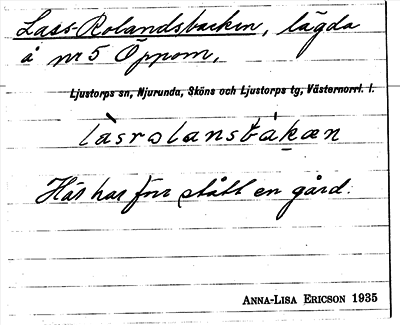 Lass-Rolandsbacken, lägda
å nr 5 Öppom,
Ljustorps sn, Njurunda, Sköns och Ljustorps tg, Västernorrl. l.
làsrɔlansbákæn
Här har förr stått en gård.
ANNA-LISA ERICSON 1935